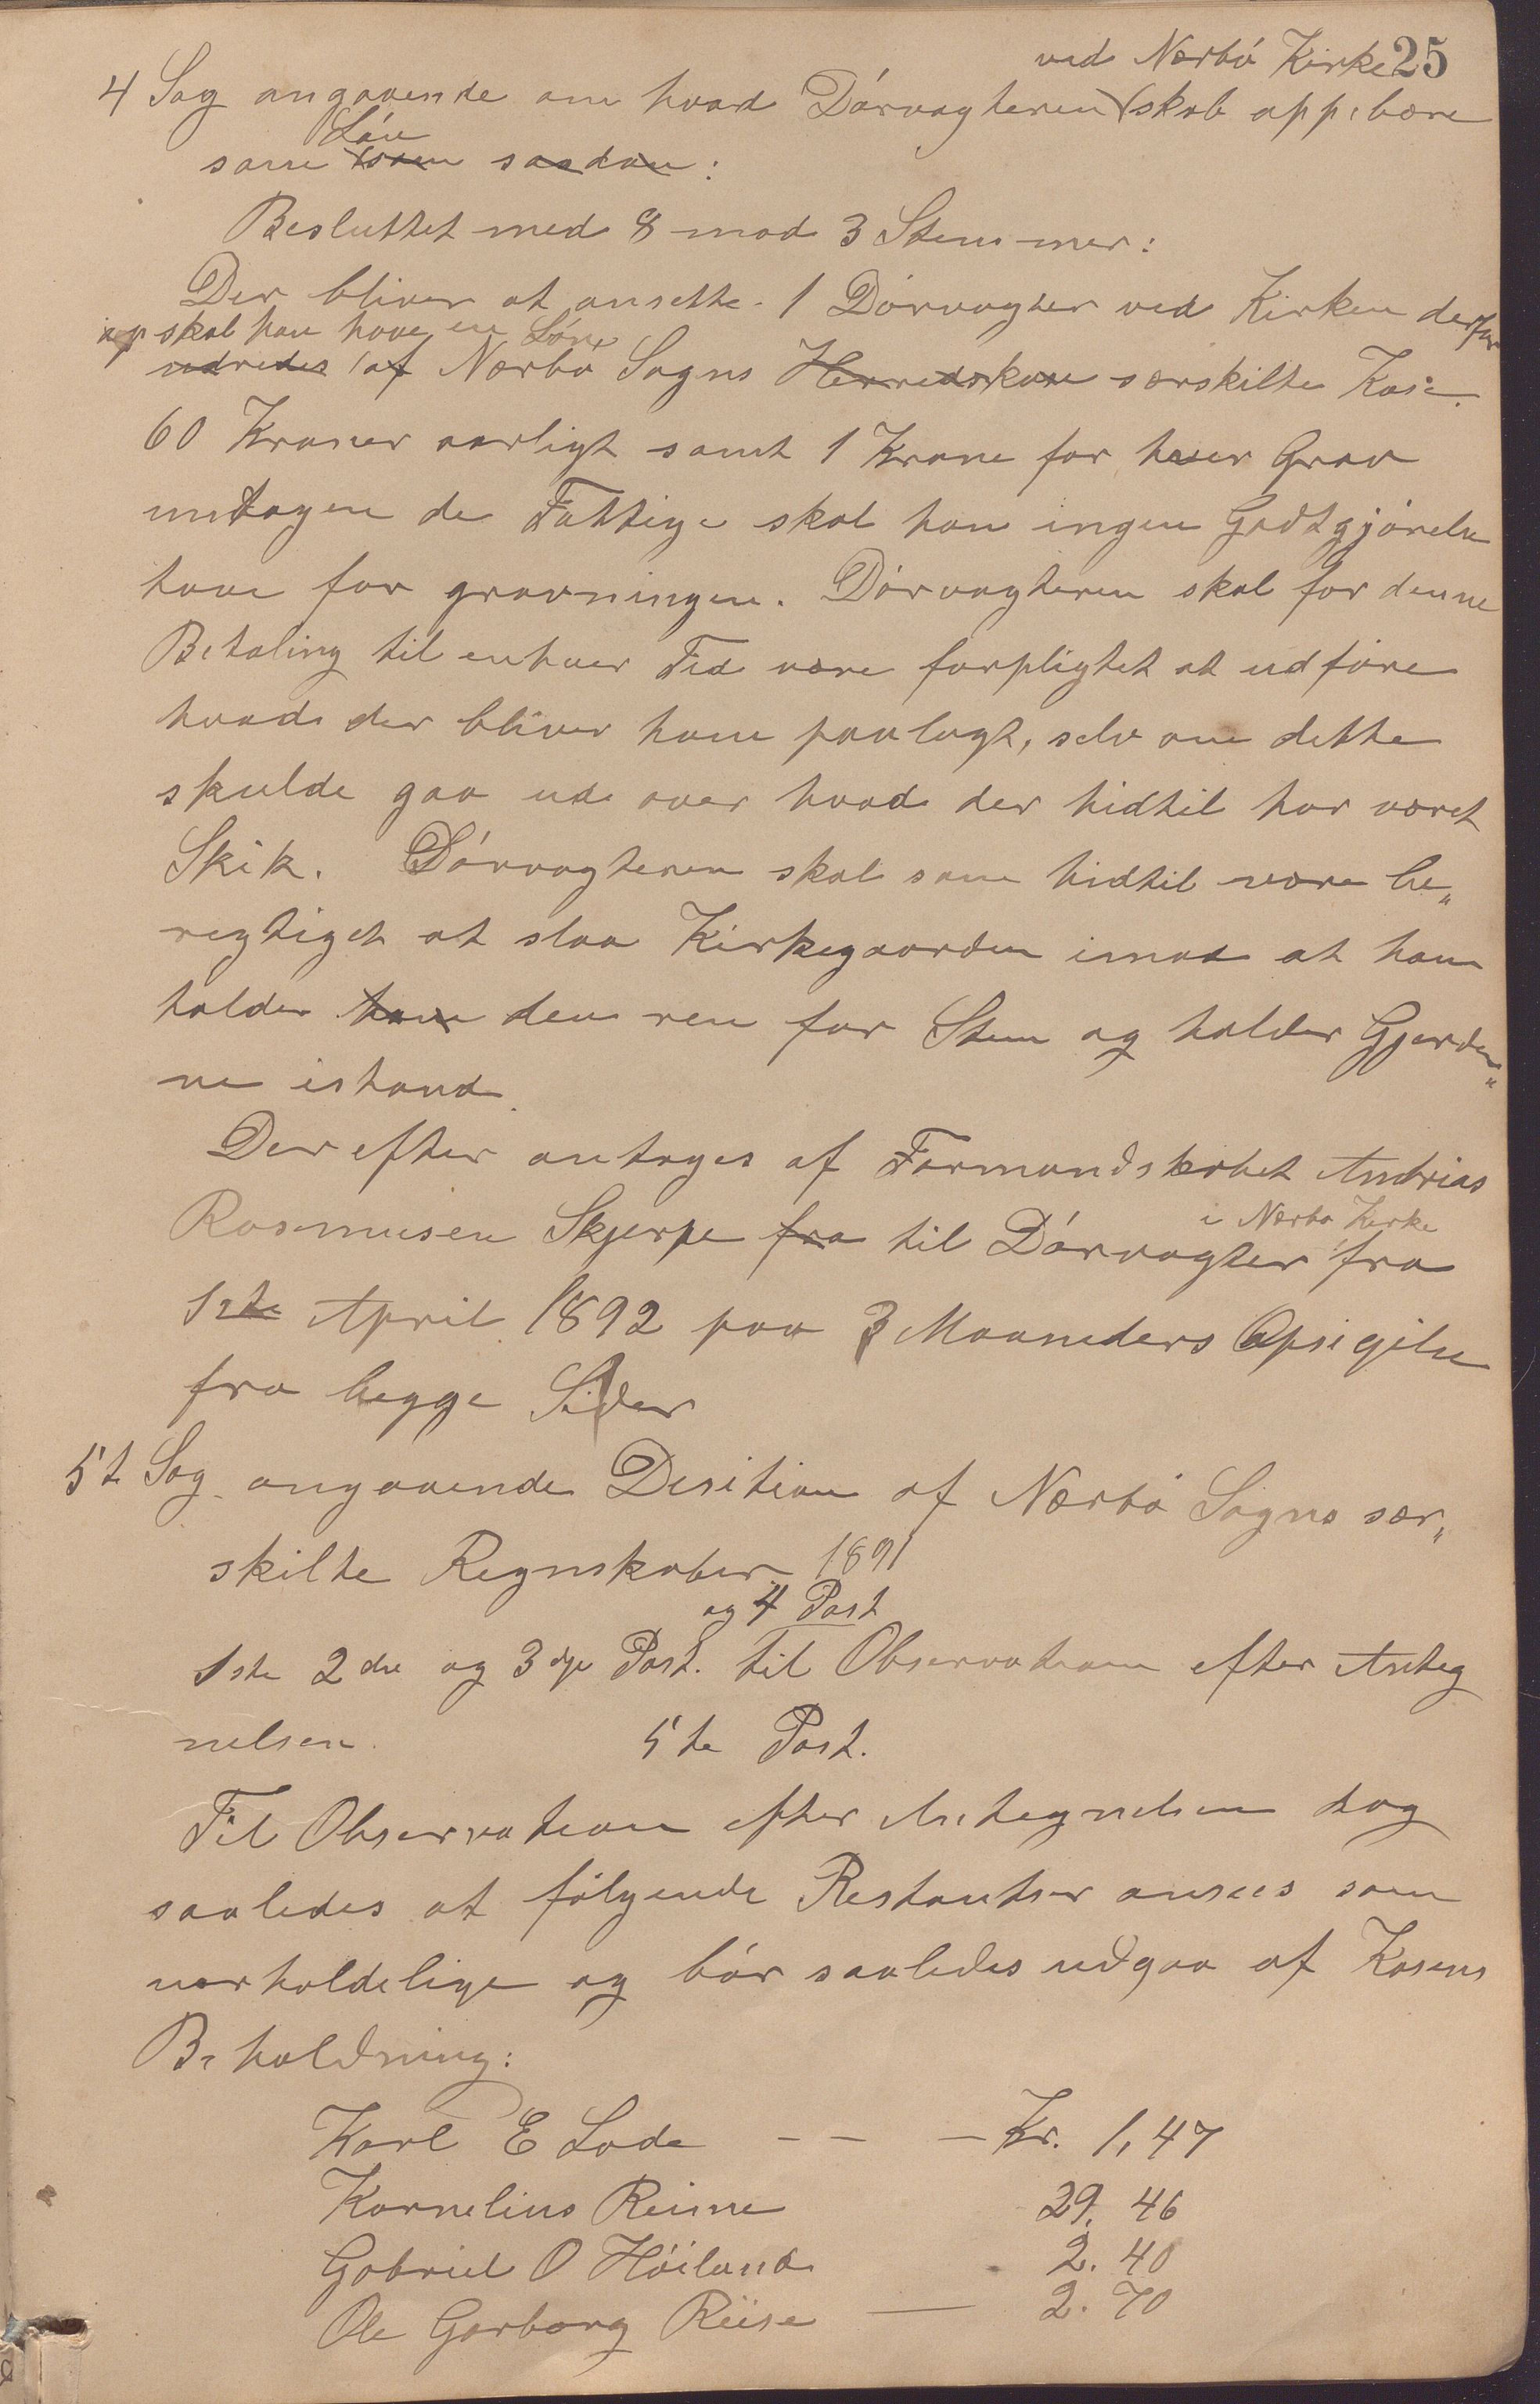 25
ved Nærbø Kirke
4 Sag angaaende om hvad Dørvagteren skal oppebære
Løn
som som saadan:
Besluttet med 8 mod 3 Stemmer:
Der bliver at ansette 1 Dørvagter ved Kirken derfor
skal han have en Løn
udredes af Nærbø Sogns Herredskase særskilte Kase.
60 Kroner aarligt samt 1 Krone for hver Grav
untagen de Fattige skal han ingen Godtgjørelse
have for gravningen. Dørvagteren skal for denne
Betaling til enhver Tid være forpligtet at udføre
hvad der bliver ham paalagt, selv om dette
skulde gaa ud over hvad der hidtil har været
Skik. Dørvagteren skal som hidtil være be„
regtiget at slaa Kirkegaarden imod at han
holder ham den ren for Sten og holder Gjerder„
ne istand.
Derefter antoges af Formandskabet Andrias
i Nærbø Kirke
Rasmusen Skjerpe fra til Dørvagter fra
1ste April 1892 paa 3 Maaneders Opsigelse
fra begge Sider
5t Sag angaaende Desition af Nærbø Sogns sær„
skilte Regnskaber 1891
og 4 Post
1ste 2den og 3dje Post. til Observation efter Anteg
nelsen.
5te Post.
Til Observation efter Antegnelsen dog
saaledes at følgende Restantser ansees som
uerholdelige og bør saaledes udgaa af Kasens
Beholdning:
Karl E Lode — — — Kr. 1,47
Kornelius Reime 29. 46
Gabriel O Høiland 2. 40
Ole Garborg Riise — 2. 70